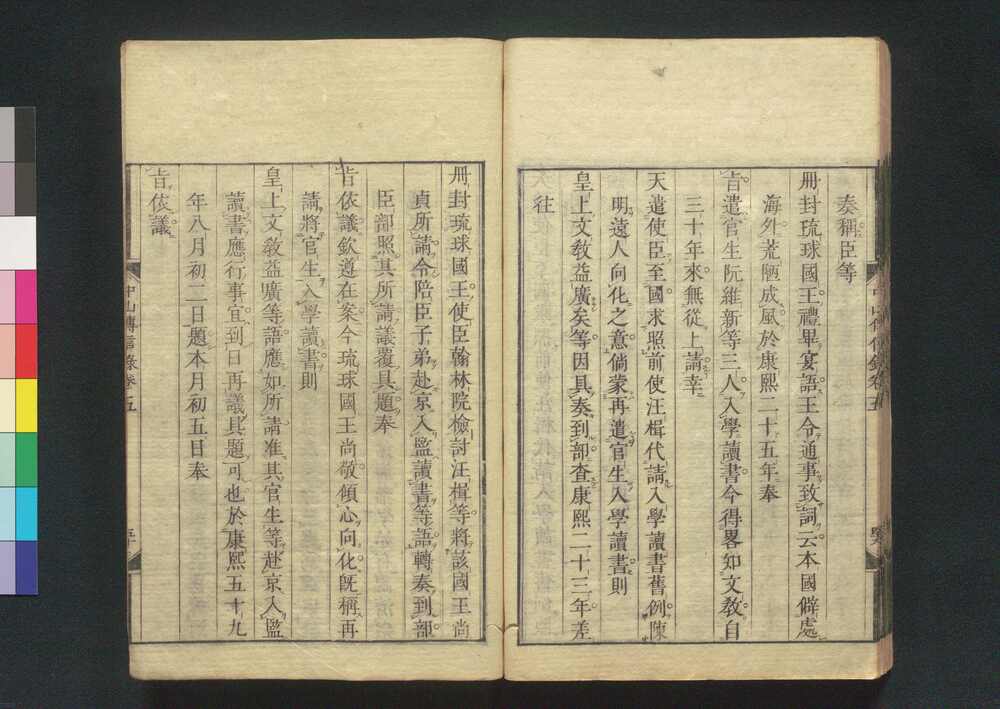 奏稱臣等
冊封琉球國王禮畢宴語王令通事致詞云本國僻處
海外荒陋成風於康熙二十五年奉
旨遣官生阮維新等三人入學讀書今得畧知文教自
三十年來無從上請幸
天遣使臣至國求照前使汪楫代請入學讀書舊例陳
明遠人向化之意倘蒙再遣官生入學讀書則
皇上文敎益廣矣等因具奏到部查康熙二十三年差
往
冊封琉球國王使臣翰林院檢討汪楫等將該國王尚
貞所請令陪臣子弟赴京入監讀書等語轉奏到部
臣部照其所請議覆具題奉
旨依議欽遵在案今琉球國王尚敬傾心向化旣稱再
請將官生入學讀書則
皇上文敎益廣等語應如所請准其官生等赴京入監
讀書應行事宜到日再議具題可也於康熙五十九
年八月初二日題本月初五日奉
旨依議
中山傳信錄卷五